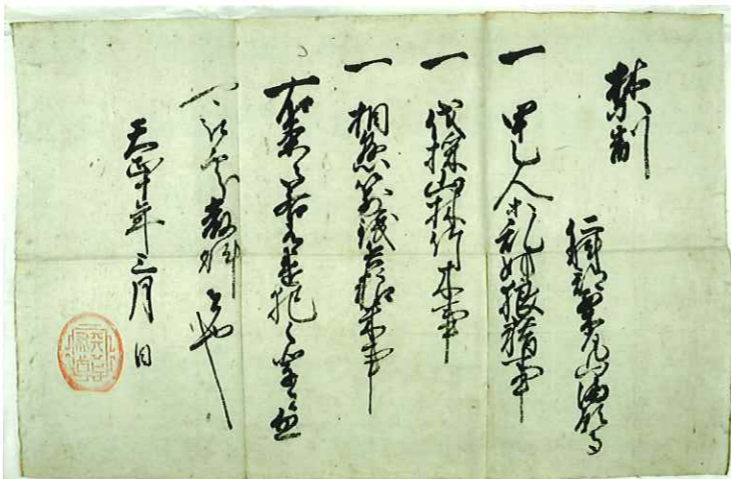 禁制
満願寺
一 甲乙人等乱妨狼藉事
一 伐採山林竹木事
一 相懸箭銭兵粮米事
右条々若有違犯之輩
可被処厳科者也
天正十年三月 日